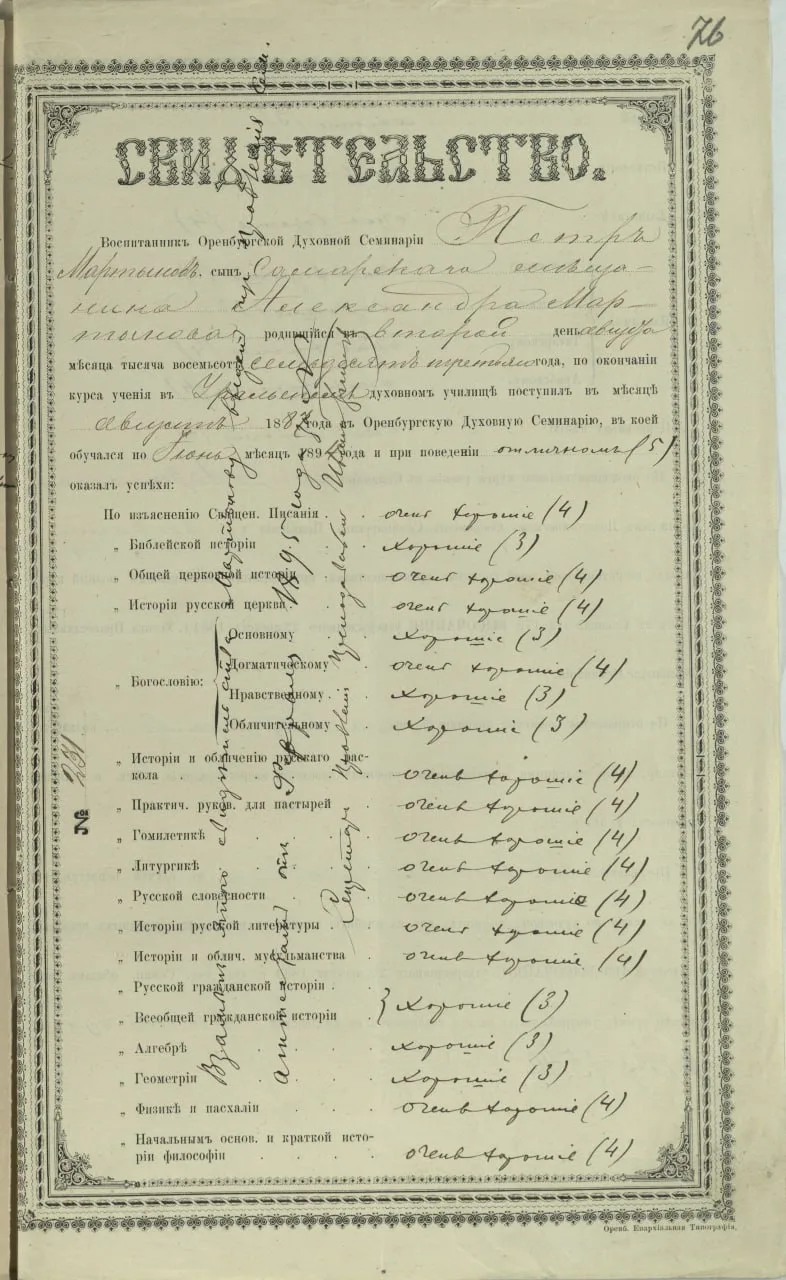 76
СВИДѢТЕЛЬСТВО.
Воспитанникъ Оренбургской Духовной Семинаріи Петръ
Мартыновъ, сынъ Самарскаго мѣща-
нина Александра Мар-
тынова, родившійся въ второй день августа
мѣсяца тысяча восемьсотъ семьдесятъ третьяго года, по окончаніи
курса ученія въ Уральскомъ духовномъ училищѣ поступилъ въ мѣсяцѣ
августѣ 188 года въ Оренбургскую Духовную Семинарію, въ коей
обучался по Іюнь мѣсяцъ 189 года и при поведеніи отличномъ (5)
оказалъ успѣхи:
По изъясненію Священ. Писанія . . очень хорошіе (4)
„ Библейской исторіи . . хорошіе (3)
„ Общей церковной исторіи . очень хорошіе (4)
„ Исторіи русской церкви . . очень хорошіе (4)
Основному . . хорошіе (3)
Догматическому . очень хорошіе (4)
„ Богословію:
Нравственному . . хорошіе (3)
Обличительному . хорошіе (3)
„ Исторіи и обличенію русскаго рас-
кола . . . . . очень хорошіе (4)
„ Практич. руков. для пастырей . очень хорошіе (4)
„ Гомилетикѣ . . . . очень хорошіе (4)
„ Литургикѣ . . . . очень хорошіе (4)
„ Русской словесности . . очень хорошіе (4)
„ Исторіи русской литературы . . очень хорошіе (4)
„ Исторіи и облич. мусульманства . очень хорошіе (4)
„ Русской гражданской исторіи . .
„ Всеобщей гражданской исторіи . хорошіе (3)
„ Алгебрѣ . . . . хорошіе (3)
„ Геометріи . . . . хорошіе (3)
„ Физикѣ и пасхаліи . . . очень хорошіе (4)
„ Начальнымъ основ. и краткой исто-
ріи философіи . . . . очень хорошіе (4)
№ 231
Взамѣнъ этого свидѣтельства Мартынову выданъ Правленія Сем.
аттестатъ 1895 года
Секретарь Правленія Преподаватель
Оренб. Епархіальная Типографія.